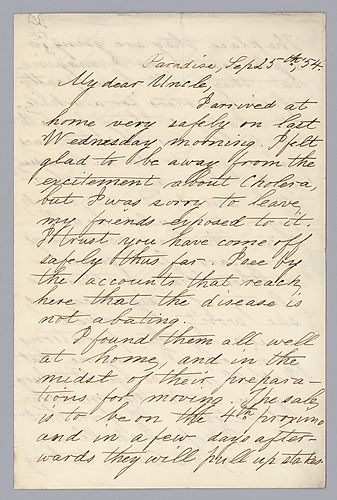 Paradise, Sep 25th, 54.
My dear Uncle,
I arrived at
home very safely on last
Wednesday morning. I felt
glad to be away from the
excitement about Cholera,
but I was sorry to leave
my friends exposed to it.
I trust you have come off
safely thus far. I see by
the accounts that reach
here that the disease is
not abating.
I found them all well
at home, and in the
midst of their prepara-
tions for moving. The sale
is to be on the 4th proximo
and in a few days after-
wards they will pull up stakes